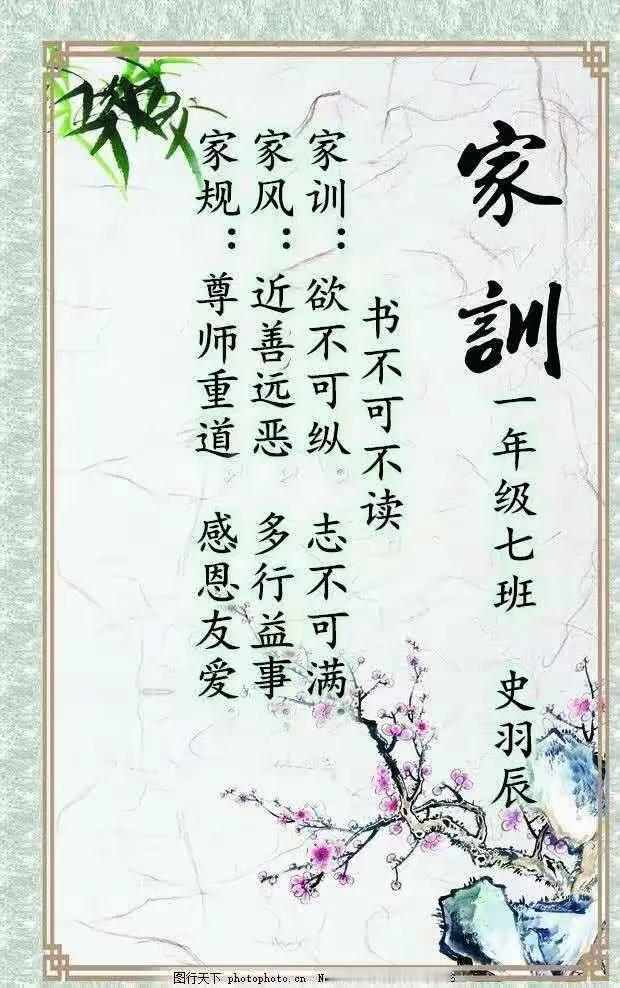 家訓
一年级七班 史羽辰
书不可不读
家训：欲不可纵 志不可满
家风：近善远恶 多行益事
家规：尊师重道 感恩友爱
图行天下 photophoto.cn